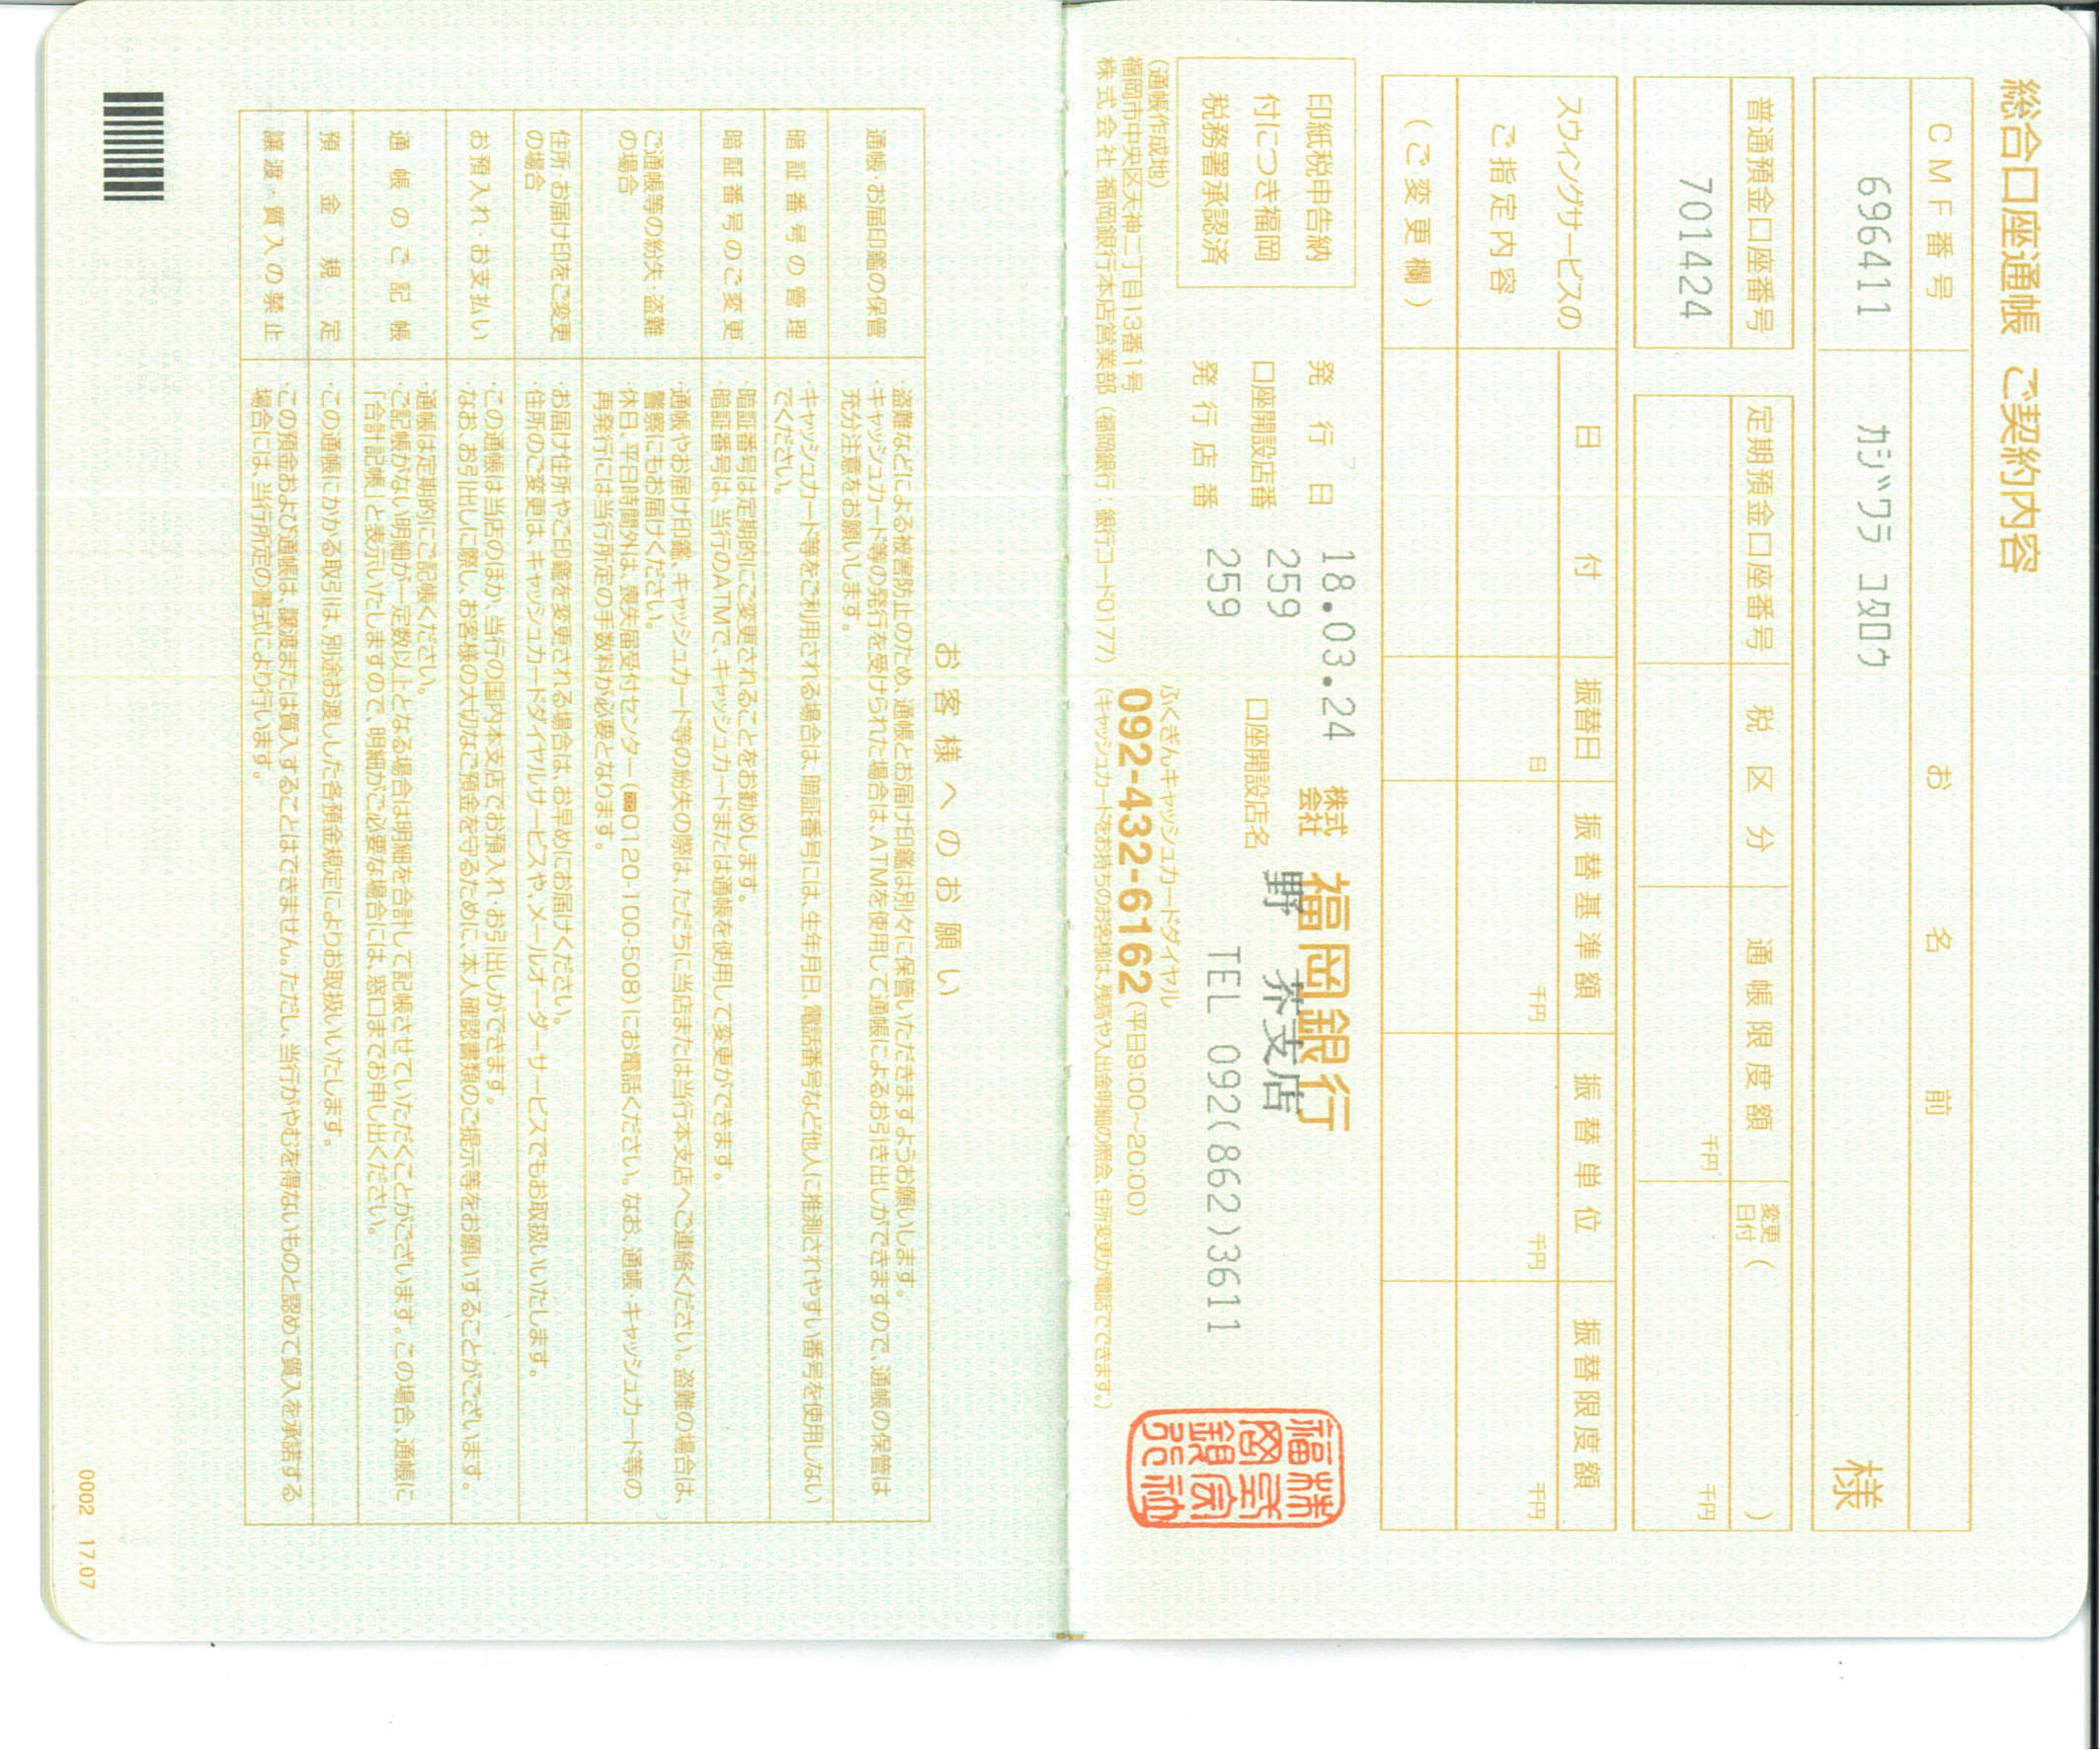 総合口座通帳 ご契約内容
CMF番号 お名前
696411 カシ゛ワラ コタロウ 様
普通預金口座番号 定期預金口座番号 税区分 通帳限度額 変更日付( )
701424 千円 千円
スウィングサービスの 日付 振替日 振替基準額 振替単位 振替限度額
ご指定内容 日 千円 千円 千円
(ご変更欄)
印紙税申告納
付につき福岡
税務署承認済
発行日 18.03.24 株式会社 福岡銀行
口座開設店番 259 口座開設店名 野芥支店
発行店番 259 TEL 092(862)3611
(通帳作成地)
福岡市中央区天神二丁目13番1号
株式会社 福岡銀行本店営業部 (福岡銀行:銀行コード0177)
ふくぎんキャッシュカードダイヤル
092-432-6162 (平日9:00～20:00)
(キャッシュカードをお持ちのお客様は、残高や入出金明細の照会、住所変更が電話でできます。)
株式会社福岡銀行
お客様へのお願い
通帳・お届印鑑の保管
・盗難などによる被害防止のため、通帳とお届け印鑑は別々に保管いただきますようお願いします。
・キャッシュカード等の発行を受けられた場合は、ATMを使用して通帳によるお引き出しができますので、通帳の保管は
充分注意をお願いします。
暗証番号の管理
・キャッシュカード等をご利用される場合は、暗証番号には、生年月日、電話番号など他人に推測されやすい番号を使用しない
でください。
暗証番号のご変更
・暗証番号は定期的にご変更されることをお勧めします。
・暗証番号は、当行のATMで、キャッシュカードまたは通帳を使用して変更ができます。
ご通帳等の紛失・盗難
の場合
・通帳やお届け印鑑、キャッシュカード等の紛失の際は、ただちに当店または当行本支店へご連絡ください。盗難の場合は、
警察にもお届けください。
・休日、平日時間外は、喪失届受付センター(0120-100-508)にお電話ください。なお、通帳・キャッシュカード等の
再発行には当行所定の手数料が必要となります。
住所・お届け印をご変更
の場合
・お届け住所やご印鑑を変更される場合は、お早めにお届けください。
・住所のご変更は、キャッシュカードダイヤルサービスや、メールオーダーサービスでもお取扱いいたします。
お預入れ・お支払い
・この通帳は当店のほか、当行の国内本支店でお預入れ・お引出しができます。
・なお、お引出しに際し、お客様の大切なご預金を守るために、本人確認書類のご提示等をお願いすることがございます。
通帳のご記帳
・通帳は定期的にご記帳ください。
・ご記帳がない明細が一定数以上となる場合は明細を合計して記帳させていただくことがございます。この場合、通帳に
「合計記帳」と表示いたしますので、明細がご必要な場合には、窓口までお申し出ください。
預金規定
・この通帳にかかる取引は、別途お渡しした各預金規定によりお取扱いいたします。
譲渡・質入の禁止
・この預金および通帳は、譲渡または質入することはできません。ただし、当行がやむを得ないものと認めて質入を承諾する
場合には、当行所定の書式により行います。
0002 17.07